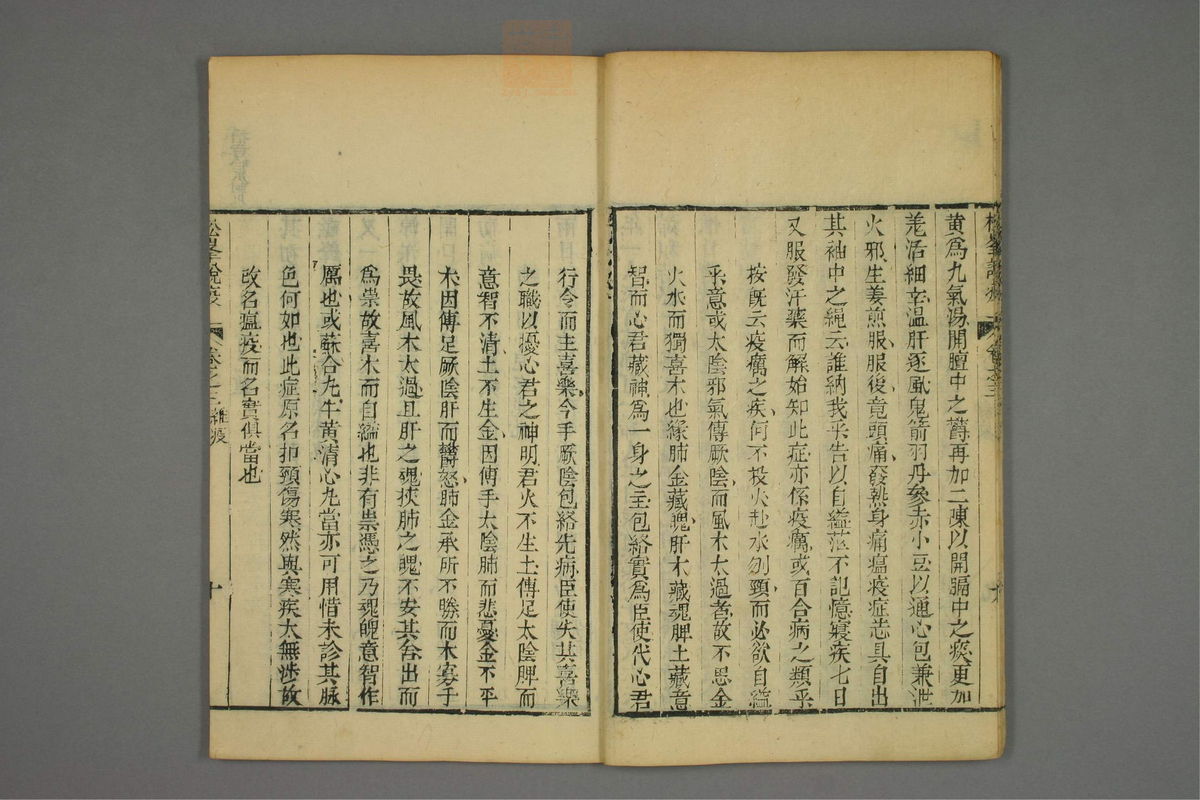 黃爲九氣湯開膻中之欝再加二陳以開膈中之痰更加
羌活細辛溫肝逐風鬼箭羽丹參赤小豆以通心包兼泄
火邪生姜煎服服後竟頭痛發熱身痛瘟疫症悉具自出
其袖中之繩云誰納我乎告以自縊茫不記憶寢疾七日
又服發汗藥而解始知此症亦係疫癘或百合病之類乎
按既云疫癘之疾何不投火赴水刎頸而必欲自縊
乎意或太陰邪氣傳厥陰而風木太過者故不思金
火水而獨喜木也緣肺金藏魄肝木藏魂脾土藏意
智而心君藏神爲一身之主包絡實爲臣使代心君
行令而主喜樂今手厥陰包絡先病臣使失其喜樂
之職以擾心君之神明君火不生土傳足太陰脾而
意智不清土不生金因傳手太陰肺而悲憂金不平
木因傳足厥陰肝而欝怒肺金承所不勝而木寡于
畏故風木太過且肝之魂挾肺之魄不安其舍出而
爲祟故喜木而自縊也非有祟憑之乃魂魄意智作
厲也或蘇合丸牛黃清心丸當亦可用惜未診其脉
色何如也此症原名扣頸傷寒然與寒疾太無涉故
改名瘟疫而名實俱當也
松峯說疫 卷之三 雜疫 十